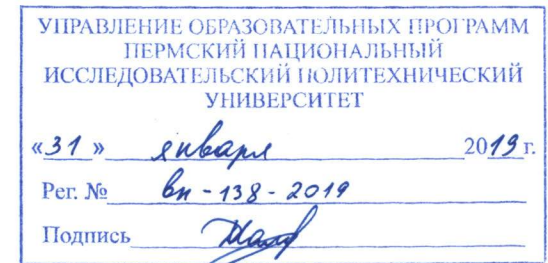 УПРАВЛЕНИЕ ОБРАЗОВАТЕЛЬНЫХ ПРОГРАММ
ПЕРМСКИЙ НАЦИОНАЛЬНЫЙ
ИССЛЕДОВАТЕЛЬСКИЙ ПОЛИТЕХНИЧЕСКИЙ
УНИВЕРСИТЕТ
«31» января 2019 г.
Рег. № вн - 138 - 2019
Подпись